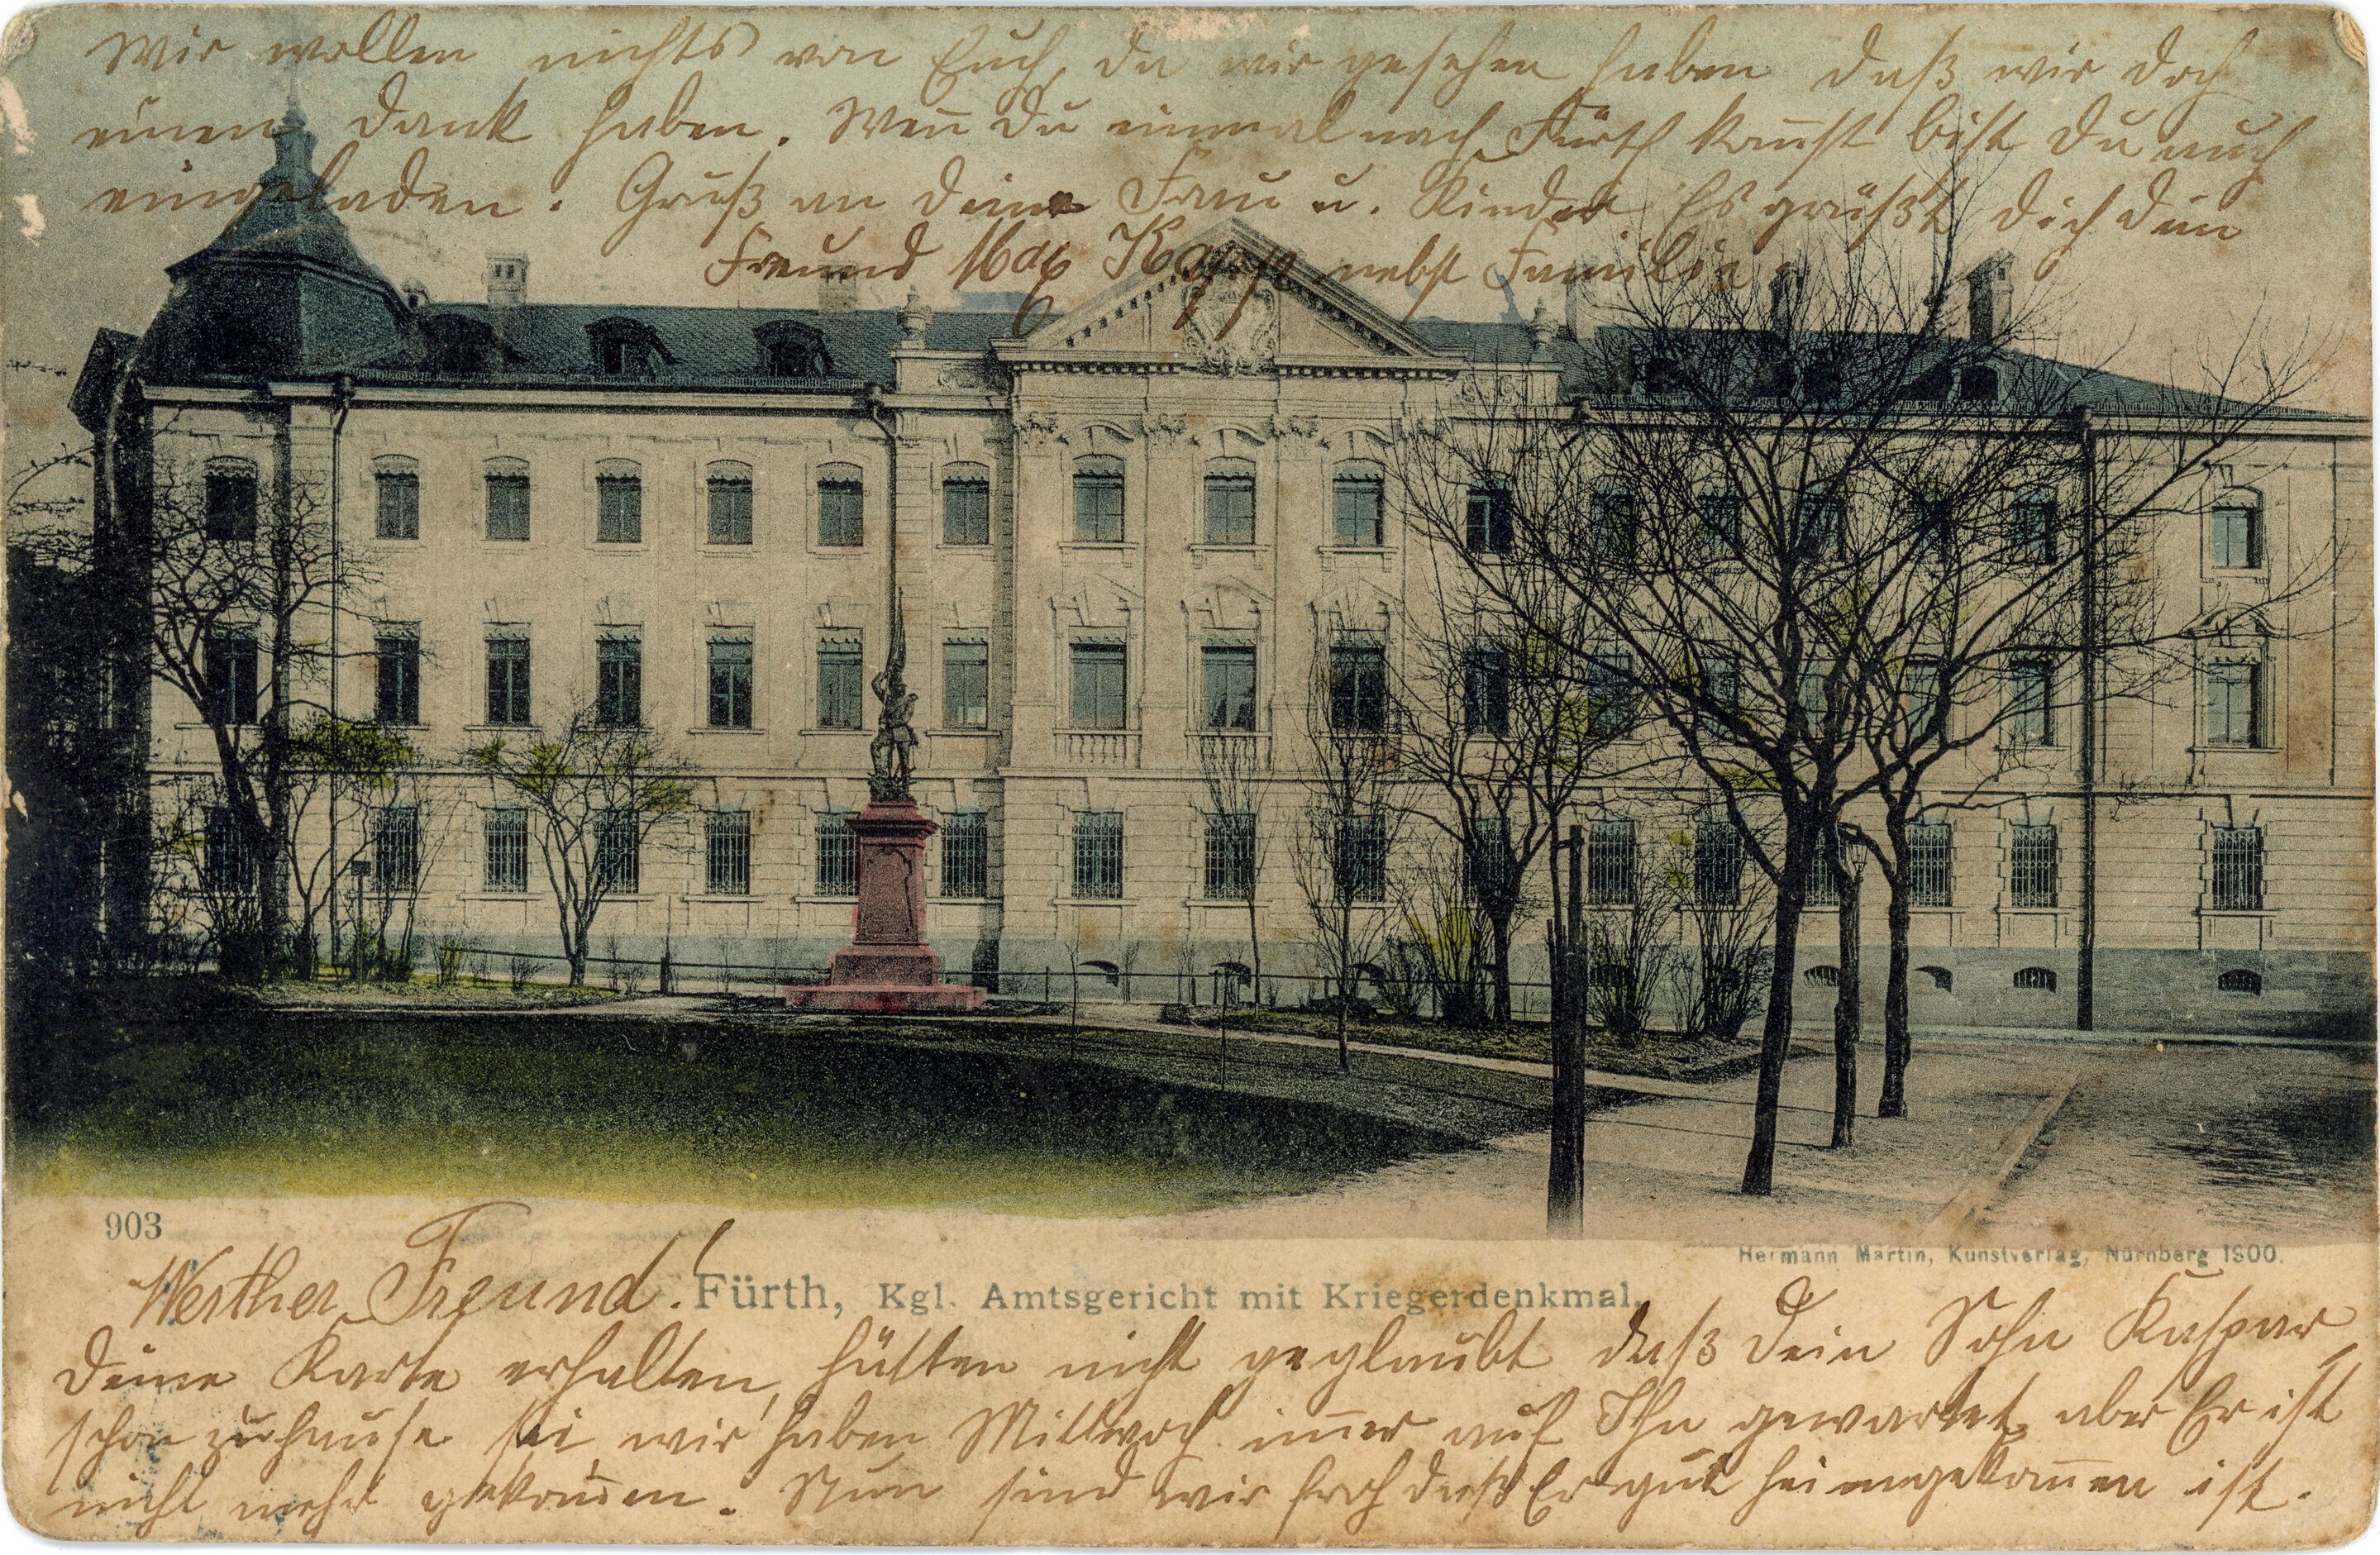 Wir wollen nichts von Euch, da wir gesehen haben daß wir doch
einen Dank haben. Weñ Du einmal nach Fürth kañst bist Du auch
eingeladen. Gruß an deine Frau u. Kinder. Es grüßt dich dein
Freund Max Kapp nebst Familie.
903
Hermann Martin, Kunstverlag, Nürnberg 1900.
Werther Freund!
Fürth, Kgl. Amtsgericht mit Kriegerdenkmal.
Deine Karte erhalten, hätten nicht geglaubt daß Dein Sohn Kaspar,
schon zuhause sei wir haben Mittwoch im̄er auf Ihn gewartet, aber Er ist
nicht mehr gekom̄en. Nun sind wir froh daß Er gut heimgekom̄en ist.